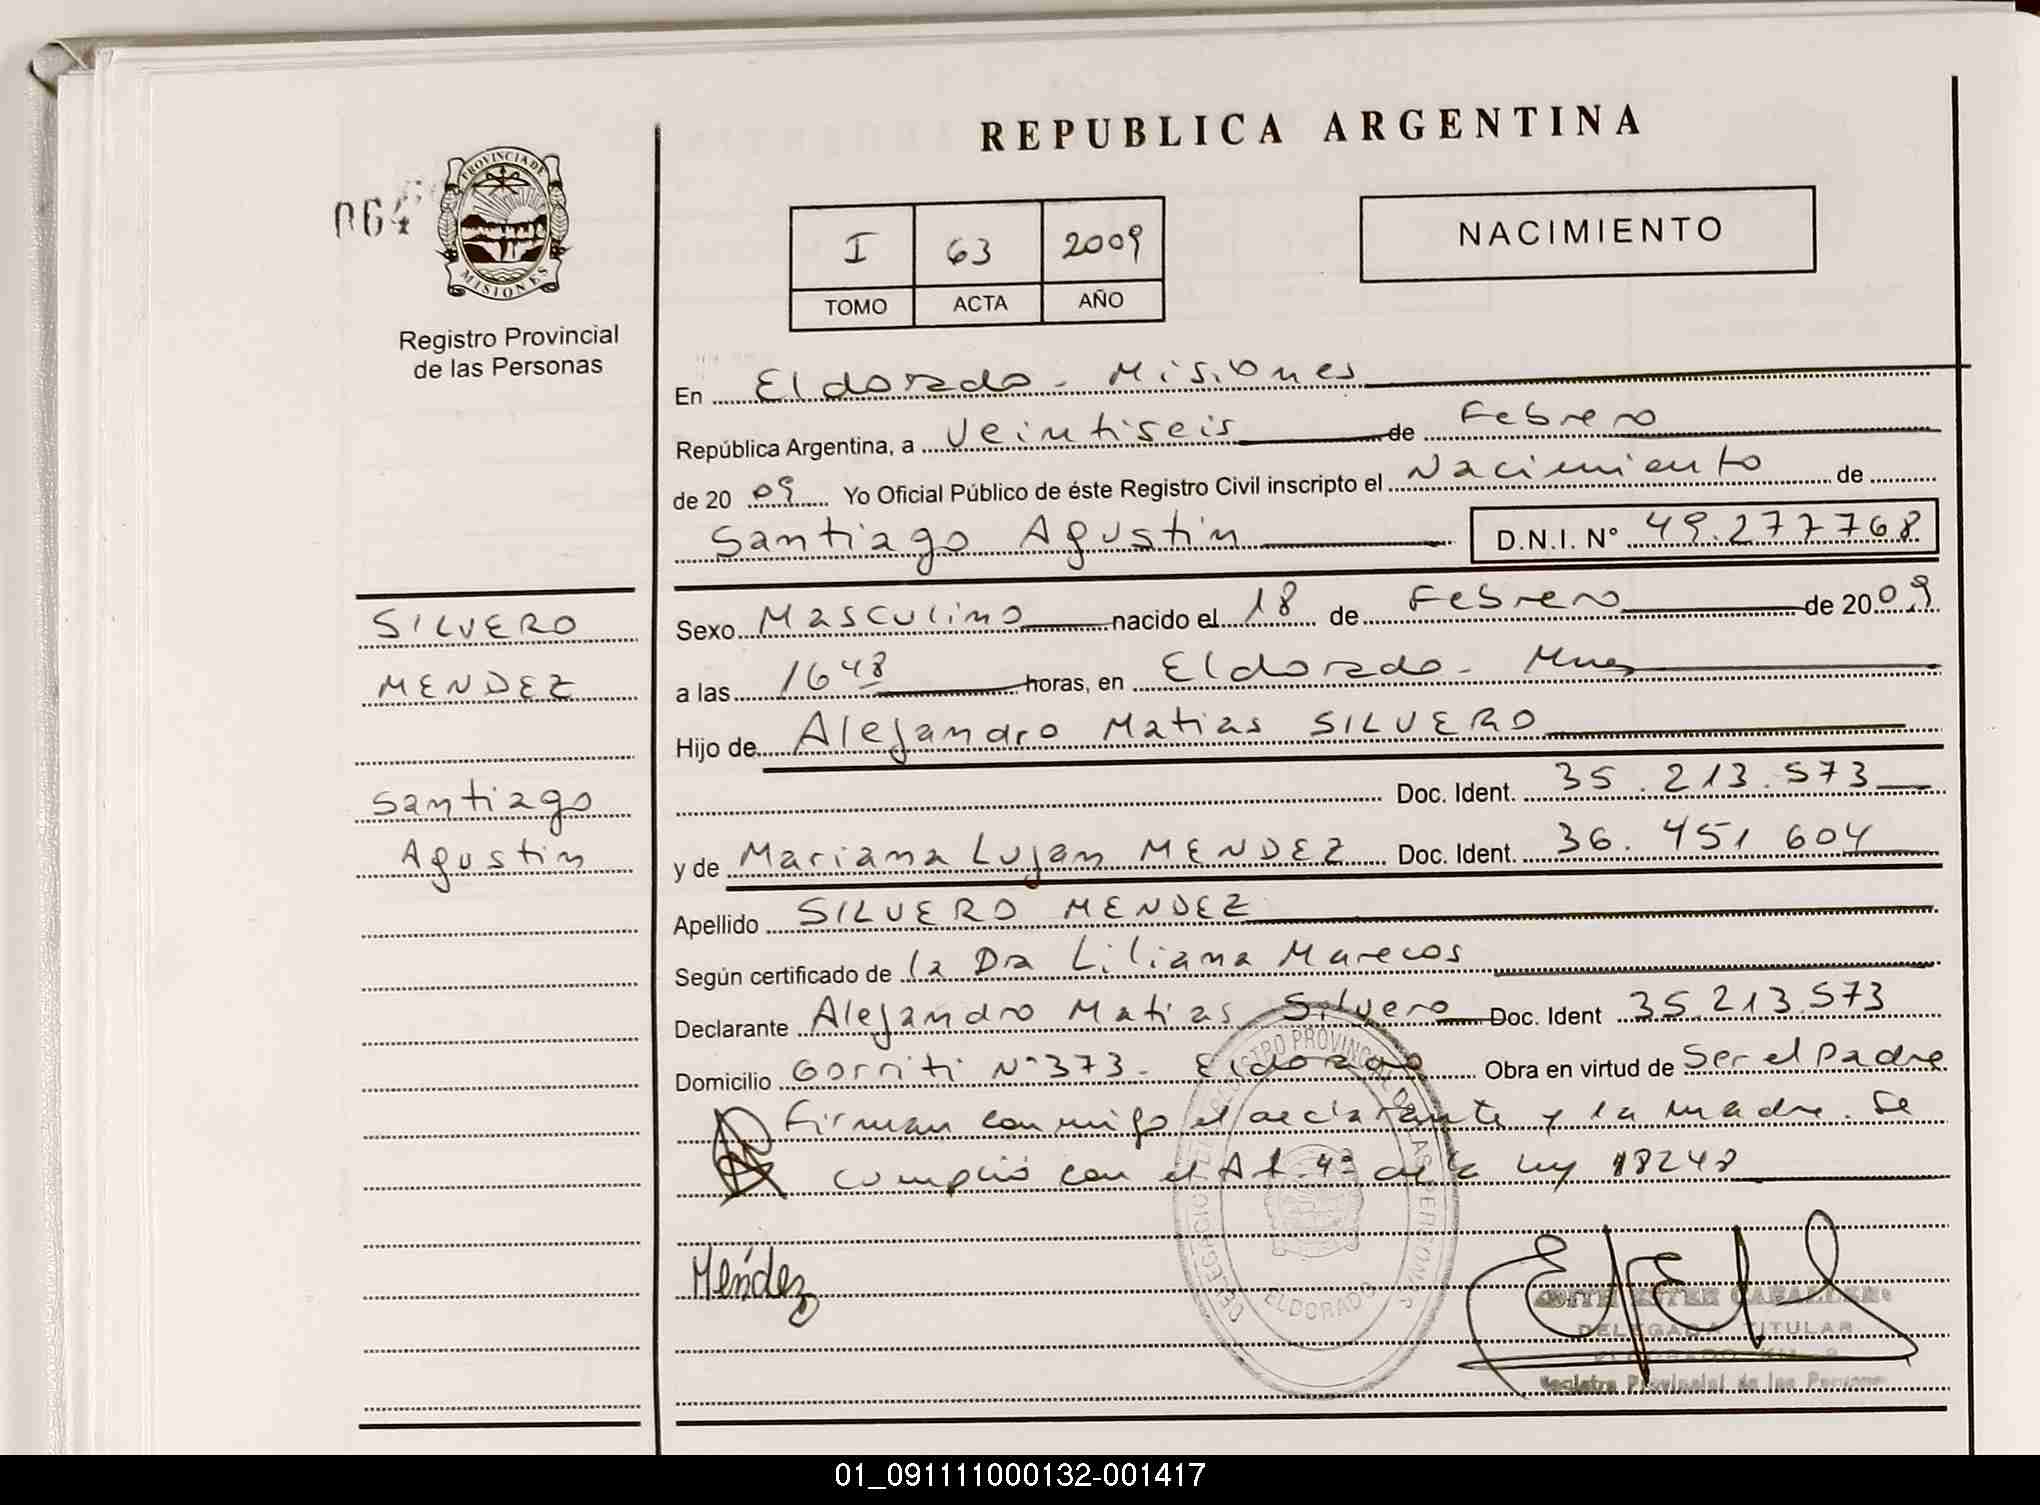 REPUBLICA ARGENTINA
064
PROVINCIA DE
MISIONES
Registro Provincial
de las Personas
I 63 2009
TOMO ACTA AÑO
NACIMIENTO
En Eldorado - Misiones
República Argentina, a Veintiseis de Febrero
de 20 09 Yo Oficial Público de éste Registro Civil inscripto el Nacimiento de
Santiago Agustin D.N.I. N° 49.277768
SILVERO
MENDEZ
Santiago
Agustin
Sexo Masculino nacido el 18 de Febrero de 2009
a las 1648 horas, en Eldorado - Mnes
Hijo de Alejandro Matias SILVERO
Doc. Ident. 35.213.573
y de Mariana Lujan MENDEZ Doc. Ident. 36.451604
Apellido SILVERO MENDEZ
Según certificado de la Dra Liliana Marecos
Declarante Alejandro Matias Silvero Doc. Ident 35.213.573
Domicilio Gorriti N° 373 - Eldorado Obra en virtud de Ser el Padre
Firman conmigo el declarante y la madre. Se
cumplió con el Art. 4º de la Ley 18248
Méndez
REGISTRO PROVINCIAL DE LAS PERSONAS
ELDORADO
DELEGADA TITULAR
Registro Provincial de las Personas
01_091111000132-001417